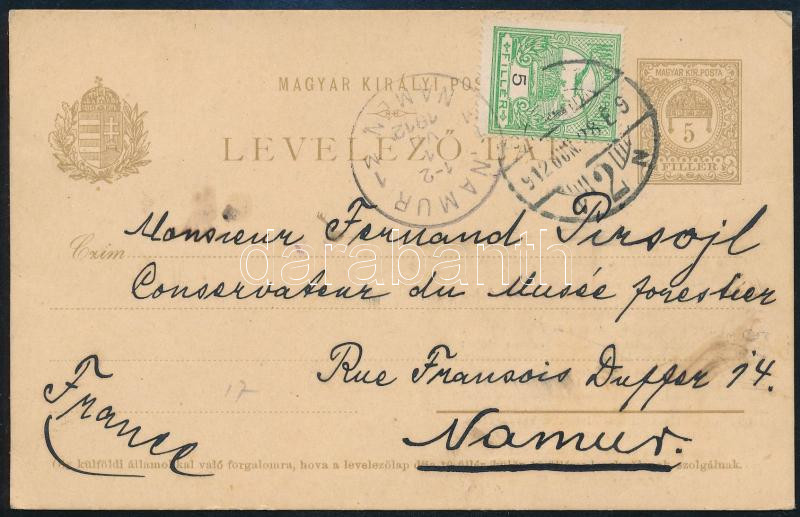 MAGYAR KIRÁLYI POS
LEVELEZŐ-LAP
MAGY. KIR. POSTA
5
FILLÉR
5
FILLÉR
NAMUR
NAMEN
1912
1-2
912 OCT.
2
Czim
Monsieur Fernand Pirsojl
Conservateur du Musée forestier
Rue Fransois Duffer 14.
Namur.
France
17
külföldi államokkal való forgalomra, hova a levelezőlap díja 10 fillér, szolgálnak.
darabanth